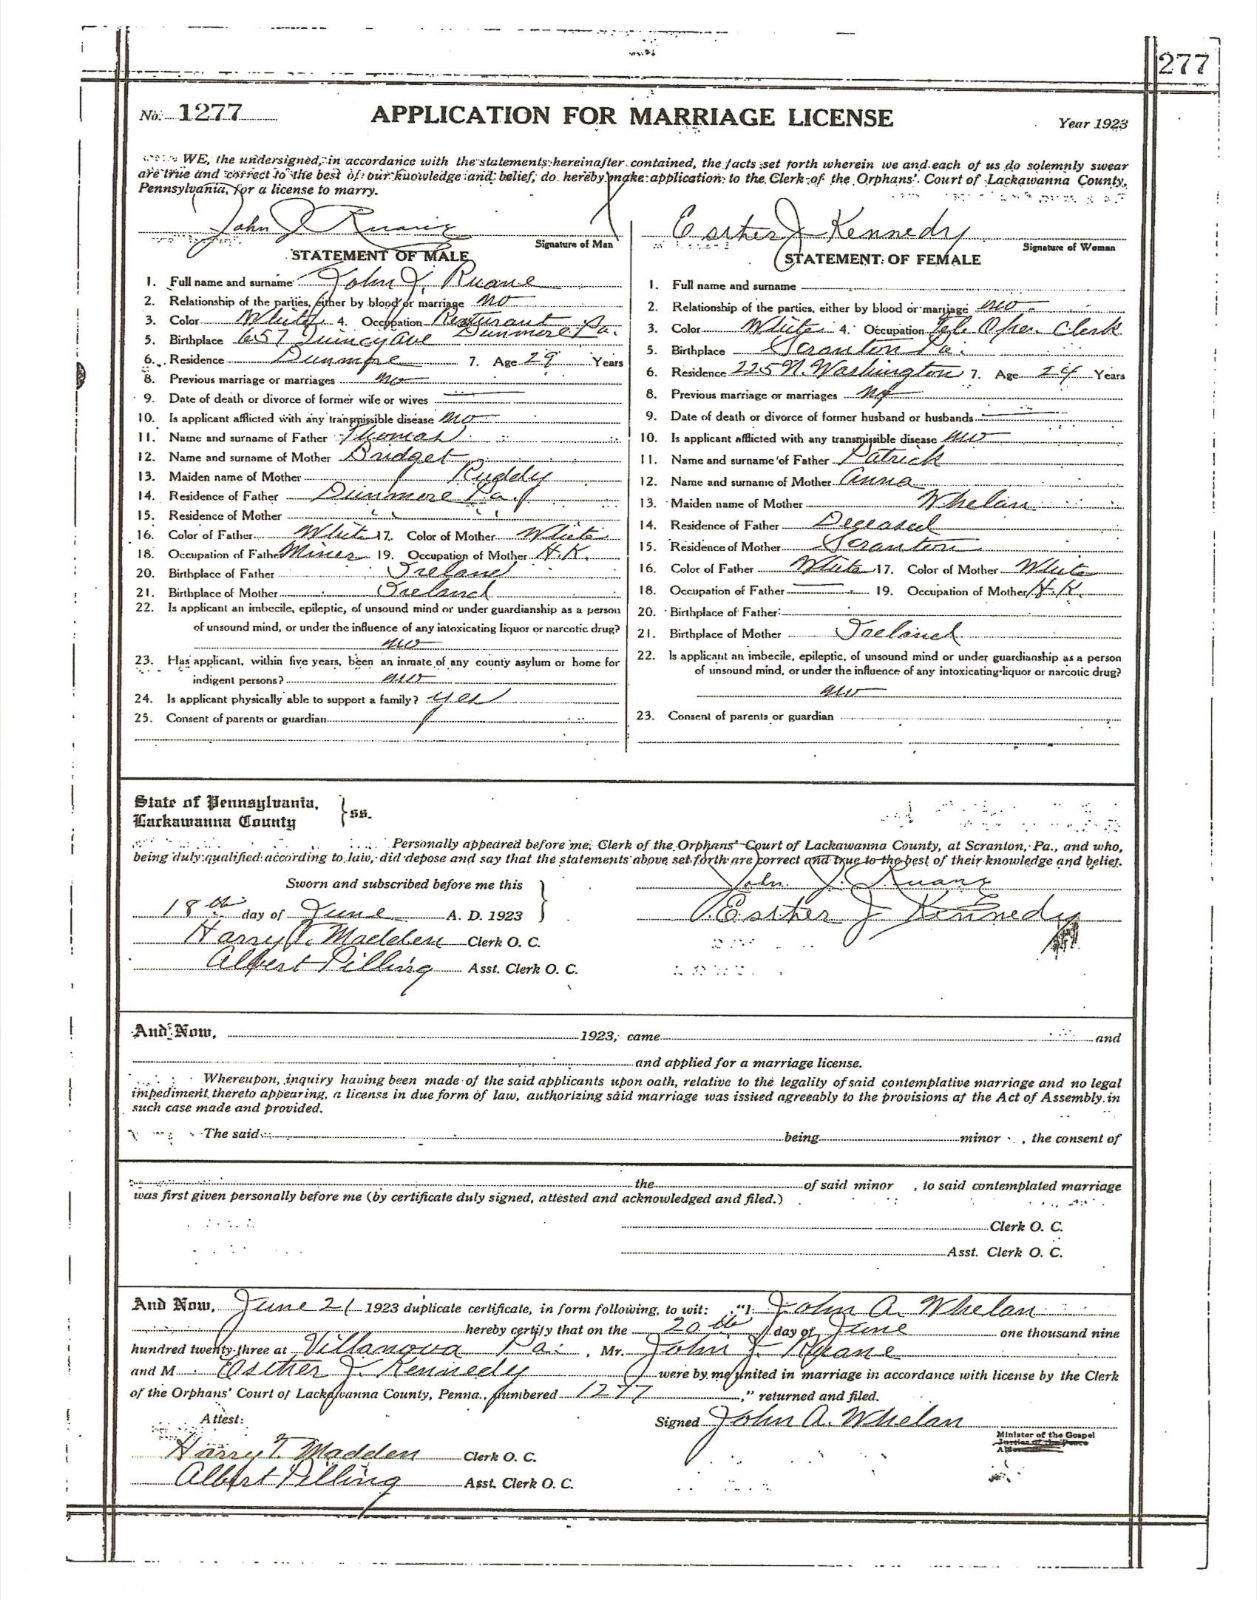 277
No. 1277 APPLICATION FOR MARRIAGE LICENSE Year 1923
WE, the undersigned, in accordance with the statements hereinafter contained, the facts set forth wherein we and each of us do solemnly swear
are true and correct to the best of our knowledge and belief, do hereby make application to the Clerk of the Orphans' Court of Lackawanna County,
Pennsylvania, for a license to marry.
John J Ruane
Signature of Man
STATEMENT OF MALE
1. Full name and surname John J. Ruane
2. Relationship of the parties, either by blood or marriage no
3. Color White 4. Occupation Resturant
5. Birthplace 657 Quincy Ave Dunmore Pa.
6. Residence Dunmore 7. Age 29 Years
8. Previous marriage or marriages no
9. Date of death or divorce of former wife or wives
10. Is applicant afflicted with any transmissible disease no
11. Name and surname of Father Thomas
12. Name and surname of Mother Bridget
13. Maiden name of Mother Ruddy
14. Residence of Father Dunmore Pa.
15. Residence of Mother " "
16. Color of Father White 17. Color of Mother White
18. Occupation of Father Miner 19. Occupation of Mother H.K.
20. Birthplace of Father Ireland
21. Birthplace of Mother Ireland
22. Is applicant an imbecile, epileptic, of unsound mind or under guardianship as a person
of unsound mind, or under the influence of any intoxicating liquor or narcotic drug?
no
23. Has applicant, within five years, been an inmate of any county asylum or home for
indigent persons? no
24. Is applicant physically able to support a family? yes
25. Consent of parents or guardian
Esther J Kennedy
Signature of Woman
STATEMENT OF FEMALE
1. Full name and surname
2. Relationship of the parties, either by blood or marriage no
3. Color White 4. Occupation Clerk
5. Birthplace Scranton Pa.
6. Residence 225 N. Washington 7. Age 24 Years
8. Previous marriage or marriages no
9. Date of death or divorce of former husband or husbands
10. Is applicant afflicted with any transmissible disease no
11. Name and surname of Father Patrick
12. Name and surname of Mother Anna
13. Maiden name of Mother Whelan
14. Residence of Father Deceased
15. Residence of Mother Scranton
16. Color of Father White 17. Color of Mother White
18. Occupation of Father 19. Occupation of Mother H.K.
20. Birthplace of Father
21. Birthplace of Mother Ireland
22. Is applicant an imbecile, epileptic, of unsound mind or under guardianship as a person
of unsound mind, or under the influence of any intoxicating liquor or narcotic drug?
no
23. Consent of parents or guardian
State of Pennsylvania,
Lackawanna County } ss.
Personally appeared before me, Clerk of the Orphans' Court of Lackawanna County, at Scranton, Pa., and who,
being duly qualified according to law, did depose and say that the statements above set forth are correct and true to the best of their knowledge and belief.
Sworn and subscribed before me this John J. Ruane
18th day of June A. D. 1923 Esther J Kennedy
Harry T. Madden Clerk O. C.
Albert Pilling Asst. Clerk O. C.
And Now, 1923, came and
and applied for a marriage license.
Whereupon, inquiry having been made of the said applicants upon oath, relative to the legality of said contemplative marriage and no legal
impediment thereto appearing, a license in due form of law, authorizing said marriage was issued agreeably to the provisions of the Act of Assembly in
such case made and provided.
The said being minor , the consent of
the of said minor , to said contemplated marriage
was first given personally before me (by certificate duly signed, attested and acknowledged and filed.)
Clerk O. C.
Asst. Clerk O. C.
And Now, June 21 1923 duplicate certificate, in form following, to wit: "I John A. Whelan
hereby certify that on the 20th day of June one thousand nine
hundred twenty-three at Villanova Pa. , Mr. John J. Ruane
and M Esther J. Kennedy were by me united in marriage in accordance with license by the Clerk
of the Orphans' Court of Lackawanna County, Penna., numbered 1277 ," returned and filed.
Attest: Signed John A. Whelan
Minister of the Gospel
Justice of the Peace
Harry T. Madden Clerk O. C.
Albert Pilling Asst. Clerk O. C.